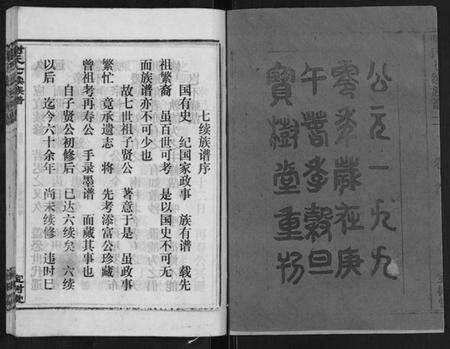 公元一九九
零年歲在庚
午菖孝穀旦
寶樹堂重梓
七续族谱序
国有史 纪国家政事 族有谱 载先
祖繁裔 虽百世可考 是以国史不可无
而族谱亦不可少也
故七世祖子贤公 著意于是 虽政事
繁忙 竟承遗志 将 先考添富公珍藏
曾祖考再寿公 手录墨谱 而藏其事也
自子贤公初修后 已达六续矣 六续
以后 迄今六十余年 尚未续修 违时已